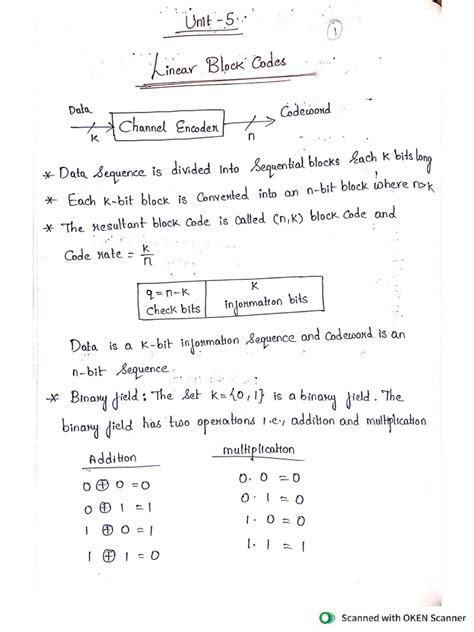 Unit - 5
1
Linear Block Codes
Data
k
Channel Encoder
n
Codeword
* Data Sequence is divided Into Sequential blocks Each k bits long
* Each k-bit block is Converted into an n-bit block where n>k
* The resultant block Code is called (n,k) block code and
Code rate = k/n
q = n-k
check bits
k
information bits
Data is a k-bit information Sequence and Codeword is an
n-bit Sequence.
* Binary field : The Set k = {0,1} is a binary field. The
binary field has two operations i.e., addition and multiplication
Addition
0 ⊕ 0 = 0
0 ⊕ 1 = 1
1 ⊕ 0 = 1
1 ⊕ 1 = 0
multiplication
0. 0 = 0
0. 1 = 0
1. 0 = 0
1. 1 = 1
Scanned with OKEN Scanner